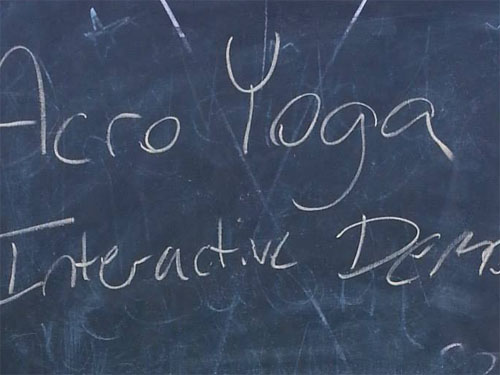 Acro Yoga
Interactive Demo